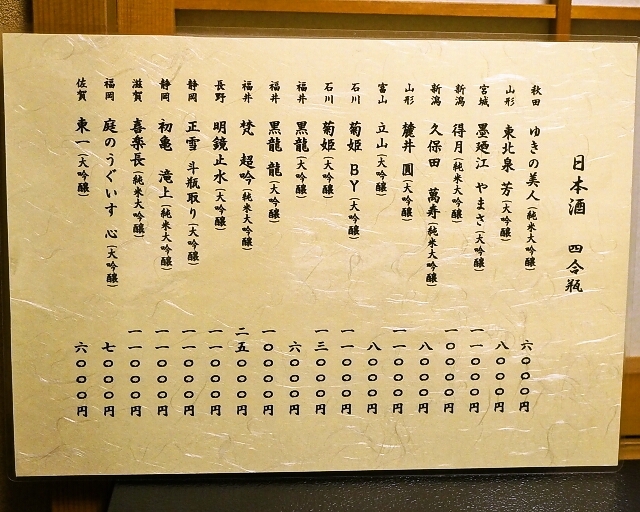 日本酒 四合瓶
秋田 ゆきの美人(純米大吟醸) 六〇〇〇円
山形 東北泉 芳(大吟醸) 八〇〇〇円
宮城 墨廼江 やまさ(大吟醸) 一一〇〇〇円
新潟 得月(純米大吟醸) 一〇〇〇〇円
新潟 久保田 萬寿(純米大吟醸) 八〇〇〇円
山形 麓井 圓(大吟醸) 一一〇〇〇円
富山 立山(大吟醸) 八〇〇〇円
石川 菊姫 BY(大吟醸) 一一〇〇〇円
石川 菊姫(大吟醸) 一三〇〇〇円
福井 黒龍(大吟醸) 六〇〇〇円
福井 黒龍 龍(大吟醸) 一〇〇〇〇円
福井 梵 超吟(純米大吟醸) 二五〇〇〇円
長野 明鏡止水(大吟醸) 一一〇〇〇円
静岡 正雪 斗瓶取り(大吟醸) 一一〇〇〇円
静岡 初亀 滝上(純米大吟醸) 一一〇〇〇円
滋賀 喜楽長(純米大吟醸) 一一〇〇〇円
福岡 庭のうぐいす 心(大吟醸) 七〇〇〇円
佐賀 東一(大吟醸) 六〇〇〇円